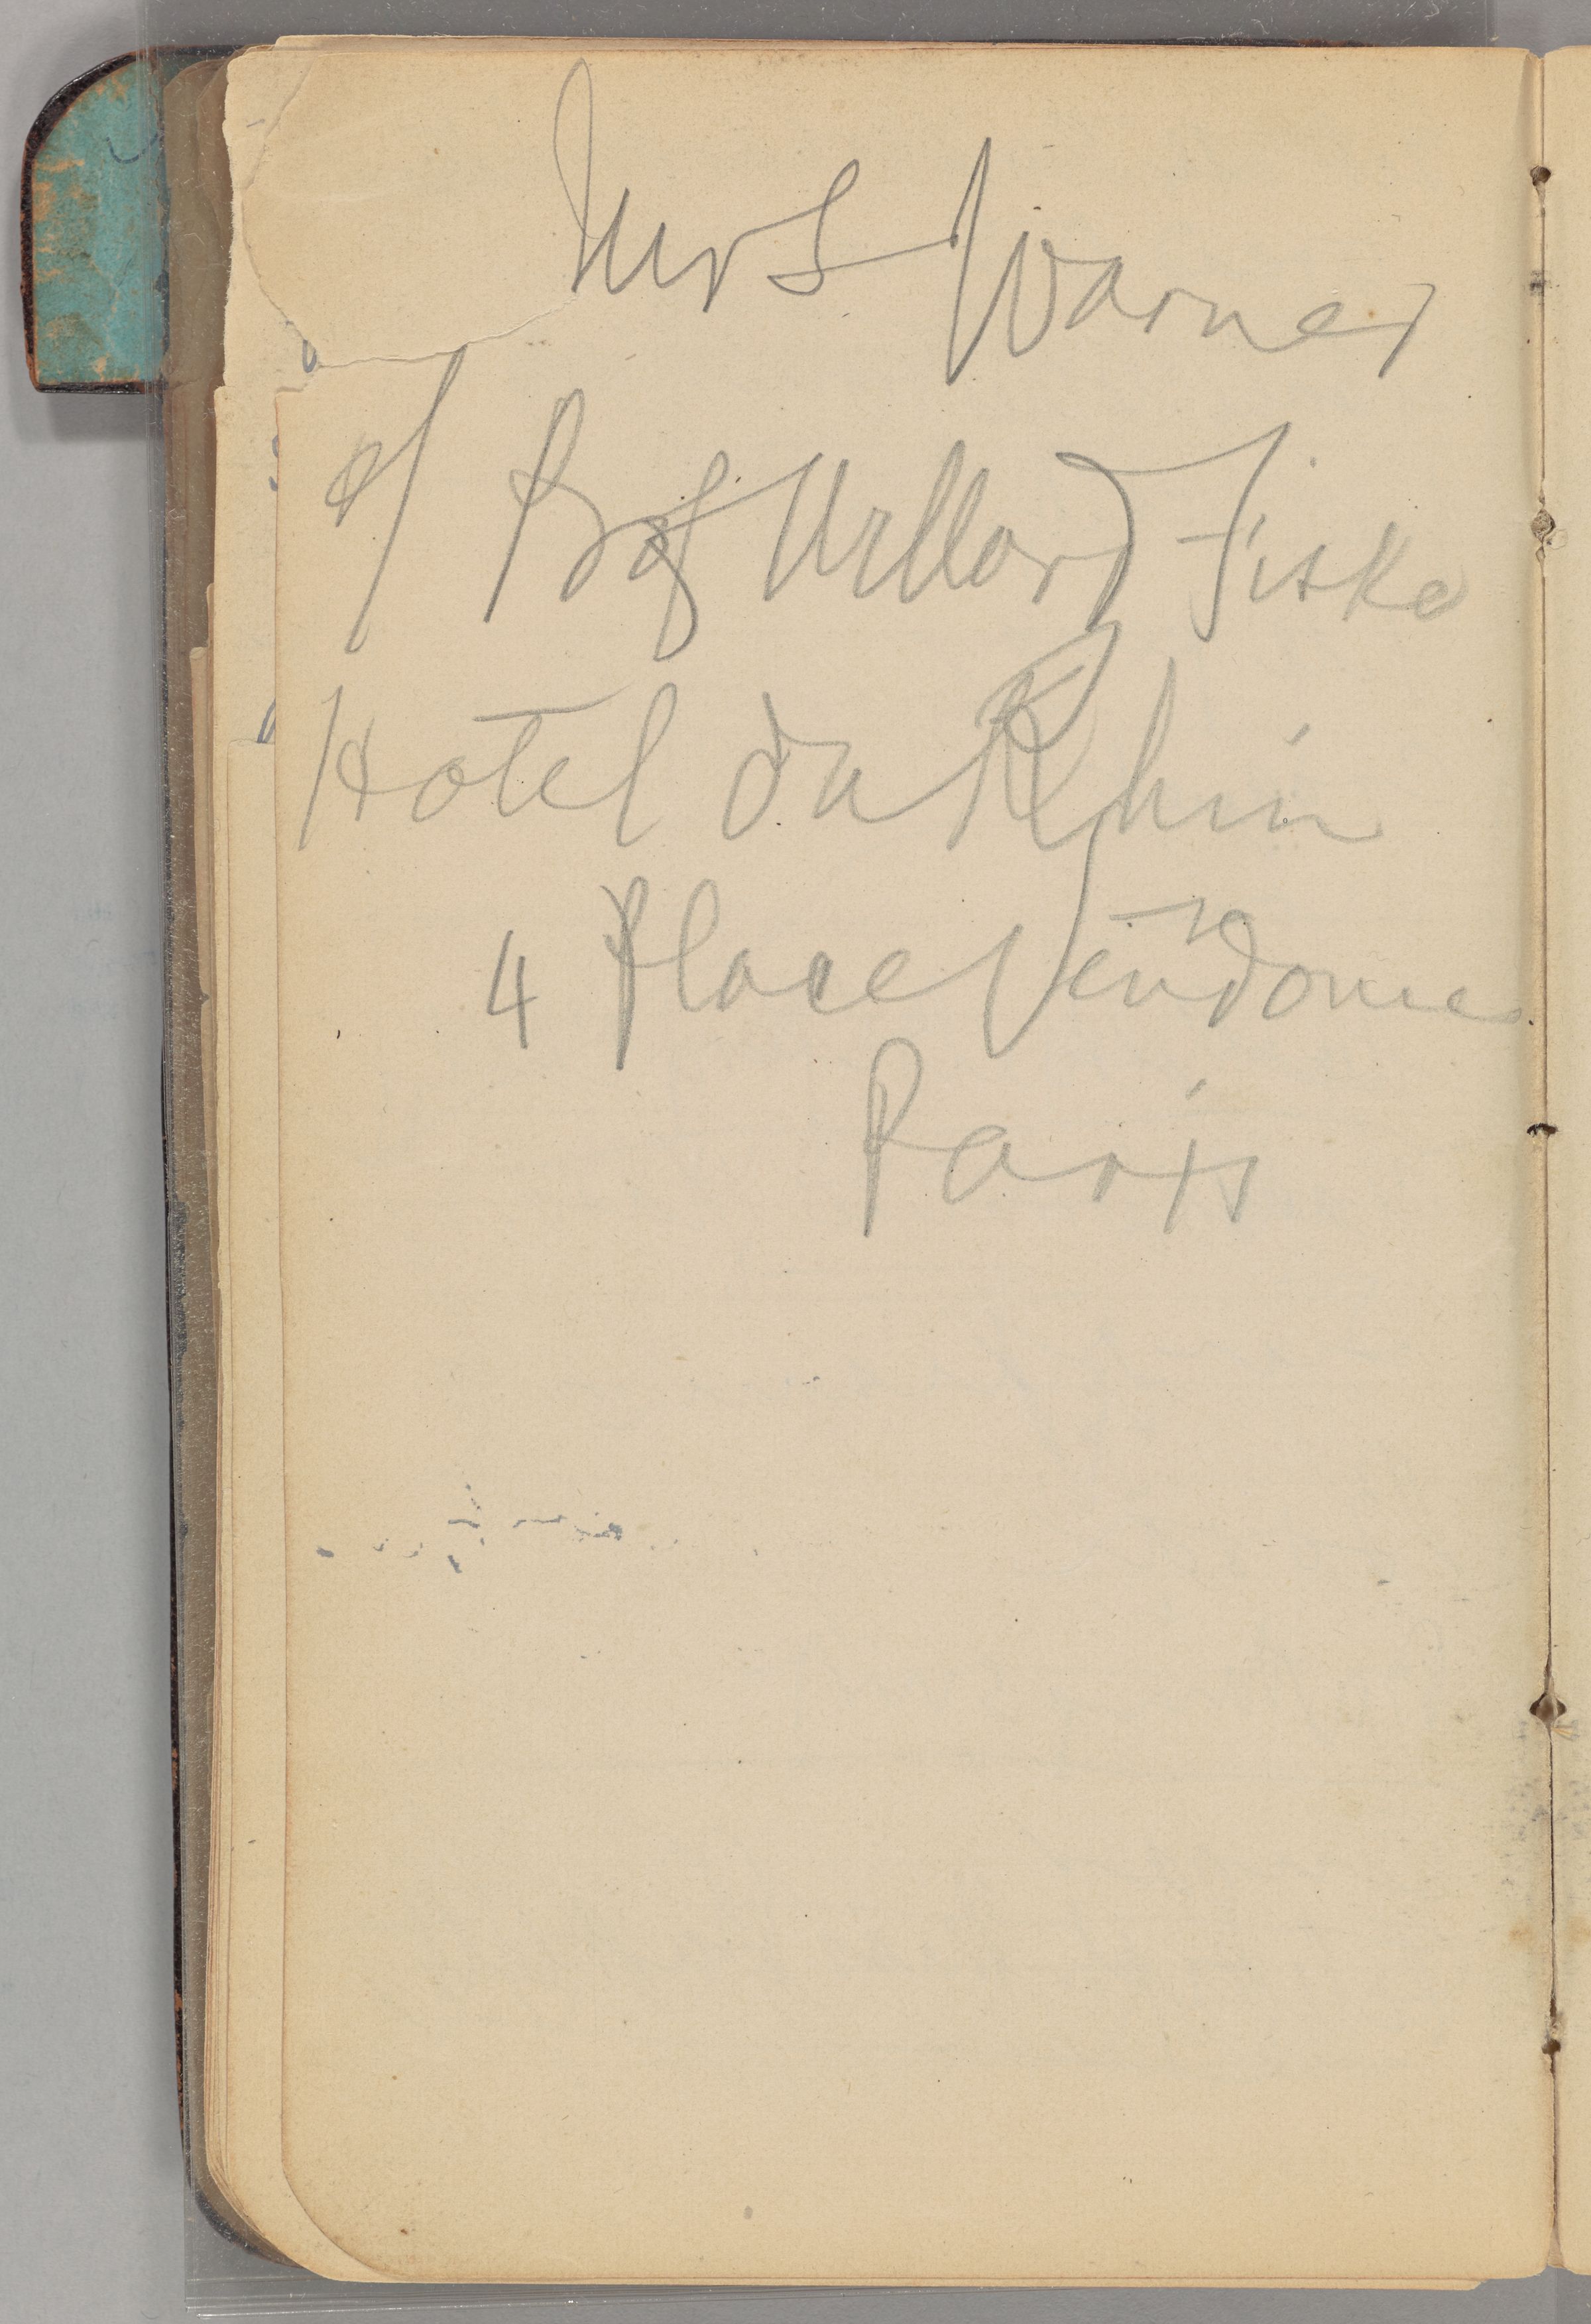 Mrs Warner
c/ Prof Willard Fiske
Hotel du Rhin
4 Place Vendome
Paris